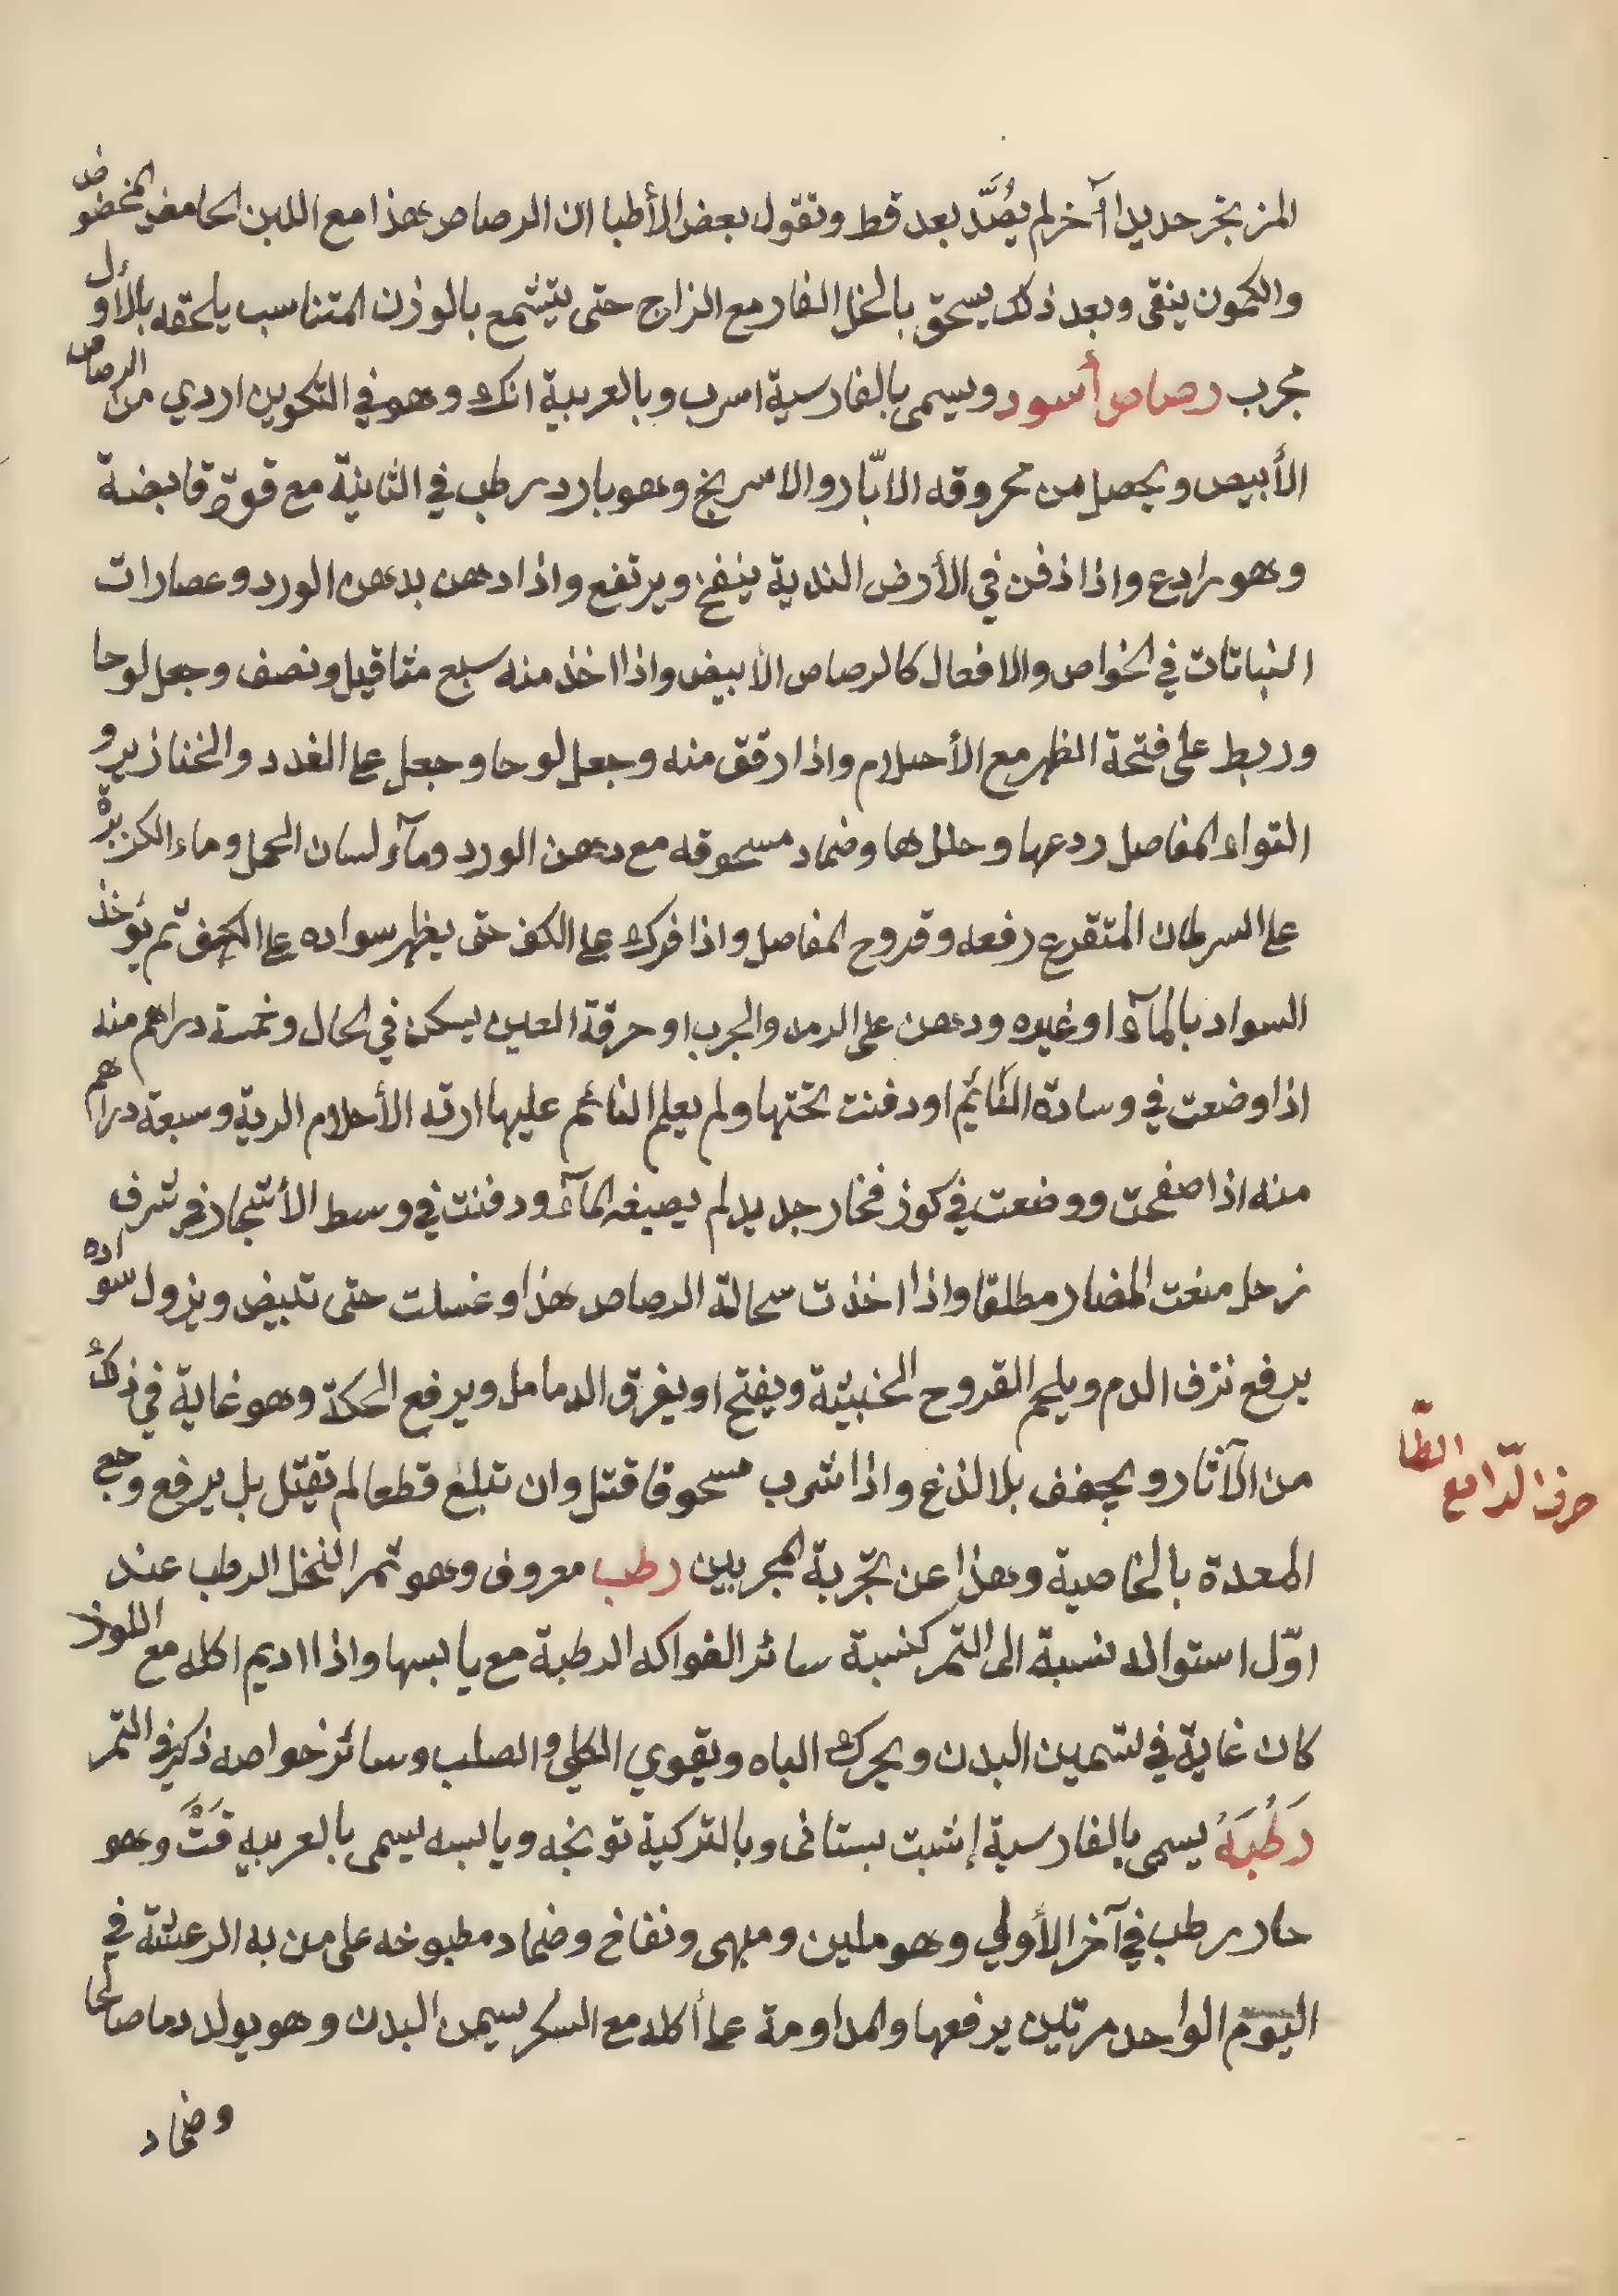 المزبخر حديدا آخر لم يُصَّد بعد قط وتقول بعض الأطبا ان الرصاص هذا مع اللبن الحامض المخضوض
والكمون ينقى وبعد ذلك يسحق بالخل الفار مع الزاج حتى يتشمع بالوزن المتناسب يلحقه بالأول
مجرب رصاص أسود ويسمى بالفارسية اسرب وبالعربية انك وهو في التكوين اردي من الرصاص
الأبيض ويحصل من محروقه الابّار والاسريج وهو بارد رطب في الثانية مع قوة قابضة
وهو رادع واذا دفن في الأرض الندية ينفخ ويرتفع واذا دهن بدهن الورد وعصارات
النباتات في الخواص والافعال كالرصاص الأبيض واذا اخذ منه سبع مثاقيل ونصف وجعل لوحا
وربط على فتحة الظهر مع الأحلام واذا رقق منه وجعل لوحا وجعل على الغدد والخنازير و
التواء المفاصل ردعها وحللها وضماد مسحوقه مع دهن الورد ومآء لسان الحمل وماء الكزبرة
على السرطان المتقرع رفعه وقروح المفاصل واذا فرك على الكف حتى يظهر سواده على الكف ثم يؤخذ
السواد بالمآء او غيره ودهن على الرمد والجرب او حرقة العين يسكن في الحال وخمسة دراهم منه
اذا وضعت في وسادة النائم او دفنت تحتها ولم يعلم النائم عليها ارته الأحلام الردية وسبعة دراهم
منه اذا صفحت ووضعت في كوز فخار جديد لم يصيغه المآء ودفنت في وسط الأشجار في شرف
زحل منعت المضار مطلقا واذا اخذت سحالة الرصاص هذا وغسلت حتى تبيض ويزول سواده
يرفع نزف الدم ويلحم القروح الخبيثة ويفتح او يغرق الدمامل ويرفع الحكة وهو غاية في ذلك
من الآثار ويجفف بلا لذع واذا شرب مسحوقا قتل وان تبلغ قطعا لم تقتل بل يرفع وجع
المعدة بالخاصية وهذا عن تجربة المجربين رطب معروف وهو تمر النخل الرطب عند
اوّل استوائه نسبة الى التمر كنسبة سائر الفواكه الرطبة مع يابسها واذا اديم اكله مع اللوز
كان غاية في تسمين البدن ويحرك الباه ويقوي الكلى والصلب وسائر خواصه ذكر في التمر
رَطْبَةُ يسمى بالفارسية إشبت بستانى وبالتركية تونجه ويابسه يسمى بالعربيه قَتَّ وهو
حار رطب في آخر الأولي وهو ملين ومبهى ونفاخ وضماد مطبوخه على من به الرعشة في
اليوم الواحد مرتين يرفعها والمداومة على أكله مع السكر يسمن البدن وهو يولد دما صالحا
وضماد
حرف الرّا مع الطّا